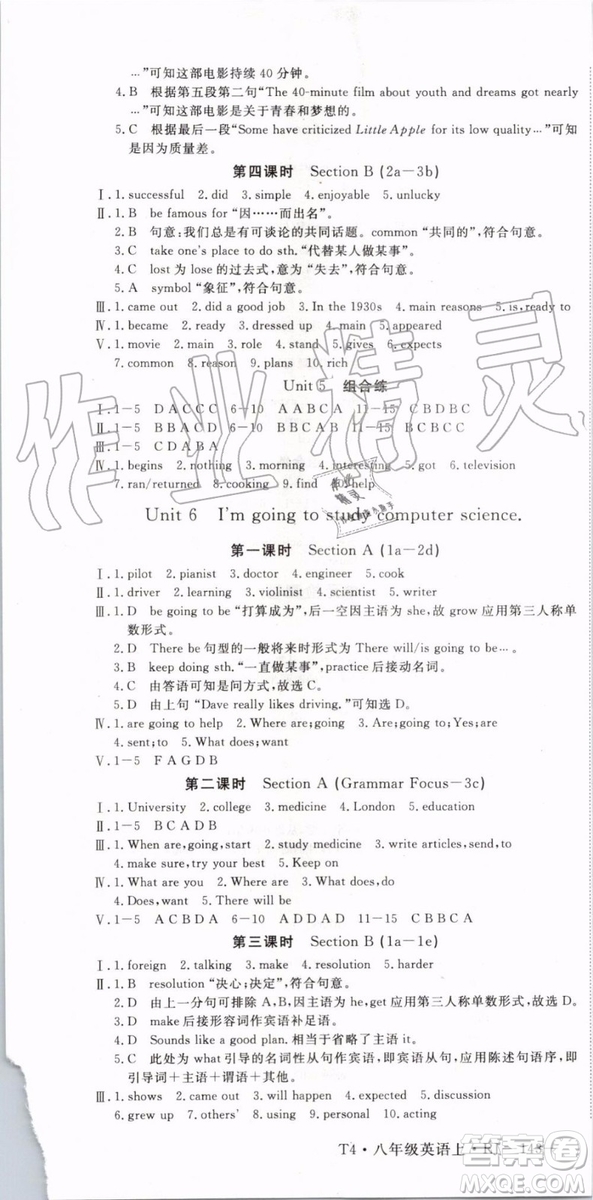 …”可知这部电影持续 40 分钟。
4. B 根据第五段第二句“The 40-minute film about youth and dreams got nearly
…”可知这部电影是关于青春和梦想的。
5. C 根据最后一段“Some have criticized Little Apple for its low quality…”可知
是因为质量差。
第四课时 Section B (2a-3b)
Ⅰ. 1. successful 2. did 3. simple 4. enjoyable 5. unlucky
Ⅱ. 1. B be famous for “因……而出名”。
2. B 句意:我们总是有可谈论的共同话题。common “共同的”,符合句意。
3. C take one's place to do sth. “代替某人做某事”。
4. C lost 为 lose 的过去式,意为“失去”,符合句意。
5. A symbol“象征”,符合句意。
Ⅲ. 1. came out 2. did a good job 3. In the 1930s 4. main reasons 5. is, ready to
Ⅳ. 1. became 2. ready 3. dressed up 4. main 5. appeared
Ⅴ. 1. movie 2. main 3. role 4. stand 5. gives 6. expects
7. common 8. reason 9. plans 10. rich
Unit 5 组合练
Ⅰ. 1-5 DACCC 6-10 AABCA 11-15 CBDBC
Ⅱ. 1-5 BBACD 6-10 BBCAB 11-15 CBBCB
Ⅲ. 1-5 CDABA
Ⅳ. 1. begins 2. nothing 3. morning 4. interesting 5. got 6. television
7. ran/returned 8. cooking 9. find 10. help
Unit 6 I'm going to study computer science.
第一课时 Section A (1a-2d)
Ⅰ. 1. pilot 2. pianist 3. doctor 4. engineer 5. cook
Ⅱ. 1. driver 2. learning 3. violinist 4. scientist 5. writer
Ⅲ. 1. D be going to be “打算成为”,后一空因主语为 she,故 grow 应用第三人称单
数形式。
2. D There be 句型的一般将来时形式为 There will/is going to be…。
3. B keep doing sth. “一直做某事”,practice 后接动名词。
4. C 由答语可知是问方式,故选 C。
5. D 由上句“Dave really likes driving.”可知选 D。
Ⅳ. 1. are going to help 2. Where are; going 3. Are; going to; Yes; are
4. sent; to 5. What does; want
Ⅴ. 1-5 FAGDB
第二课时 Section A (Grammar Focus-3c)
Ⅰ. 1. University 2. college 3. medicine 4. London 5. education
Ⅱ. 1-5 BCADB
Ⅲ. 1. When are, going, start 2. study medicine 3. write articles, send, to
4. make sure, try your best 5. Keep on
Ⅳ. 1. What are you 2. Where are, going 3. How are, going, do
4. Does, want 5. There will be
Ⅴ. 1-5 ACBDA 6-10 ADDAD 11-15 CBBCA
第三课时 Section B (1a-1e)
Ⅰ. 1. foreign 2. talking 3. make 4. resolution 5. harder
Ⅱ. 1. B resolution “决心;决定”,符合句意。
2. D 由上一分句可排除 A、B,因主语为 he,get 应用第三人称单数形式,故选 D。
3. D make 后接形容词作宾语补足语。
4. D Sounds like a good plan. 相当于省略了主语 That,符合语境。
5. C 此处为 what 引导的名词性从句作宾语,即宾语从句,应用陈述句语序,即
引导词+主语+谓语+其他。
Ⅲ. 1. shows 2. came out 3. will happen 4. exciting 5. question
6. grew up 7. others' 8. using 9. personal 10. acting
T4·八年级英语上·RJ-148-
作业精灵
答案圈